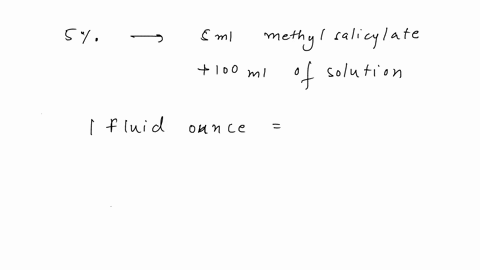 5%. → 5ml methyl salicylate
+100 ml of solution
1 fluid ounce =